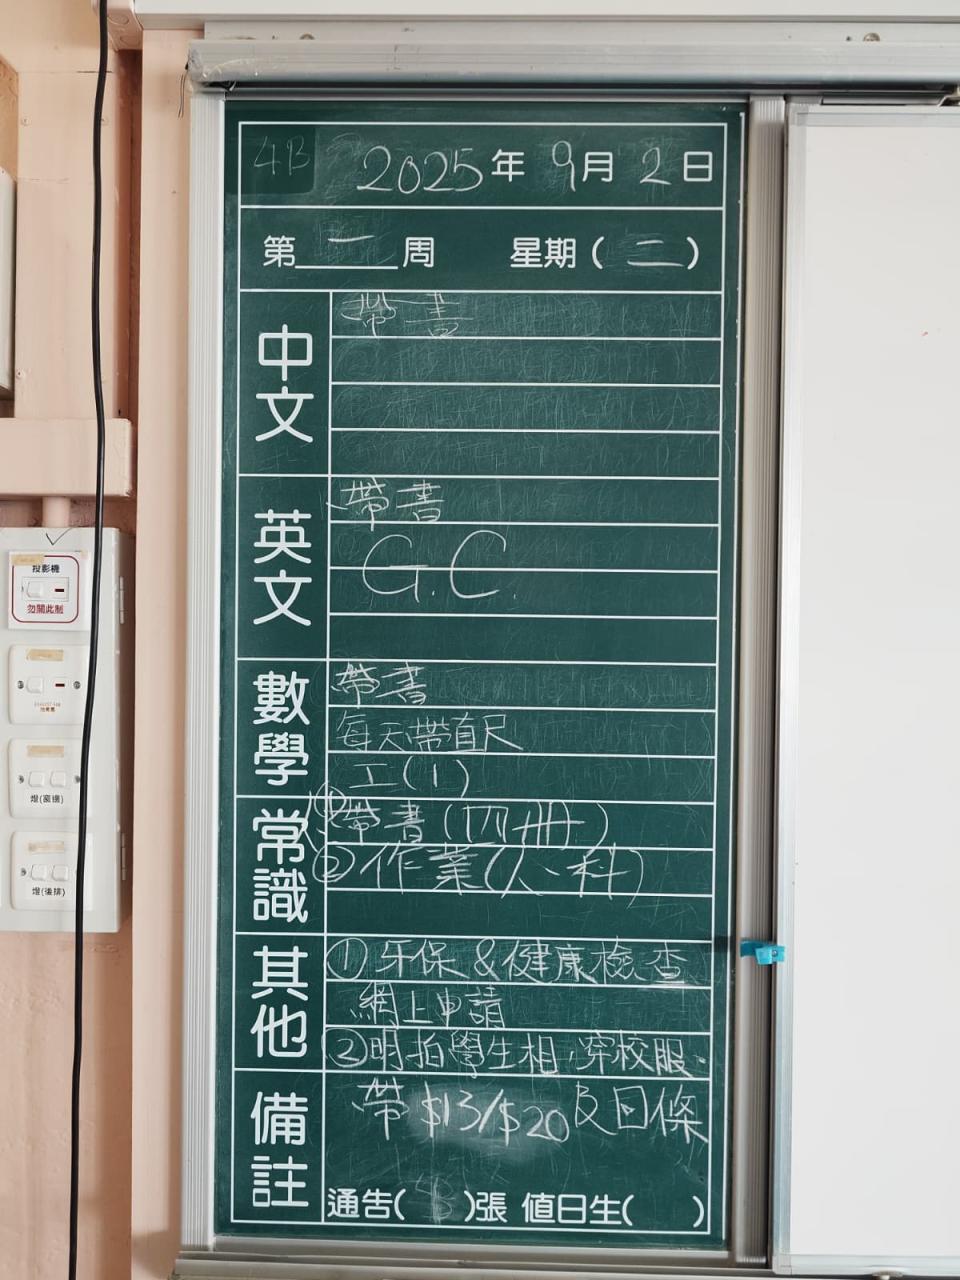 4B 2025年 9月 2日
第一周 星期(二)
中文
帶書
英文
帶書
G.C.
數學
帶書
每天帶直尺
工(1)
常識
①帶書(四冊)
②作業(人、科)
其他
①牙保&健康檢查
網上申請
②明拍學生相,穿校服.
備註
帶$13/$20及回條
通告( )張 值日生( )
投影機
勿關此制
燈(窗邊)
燈(後排)